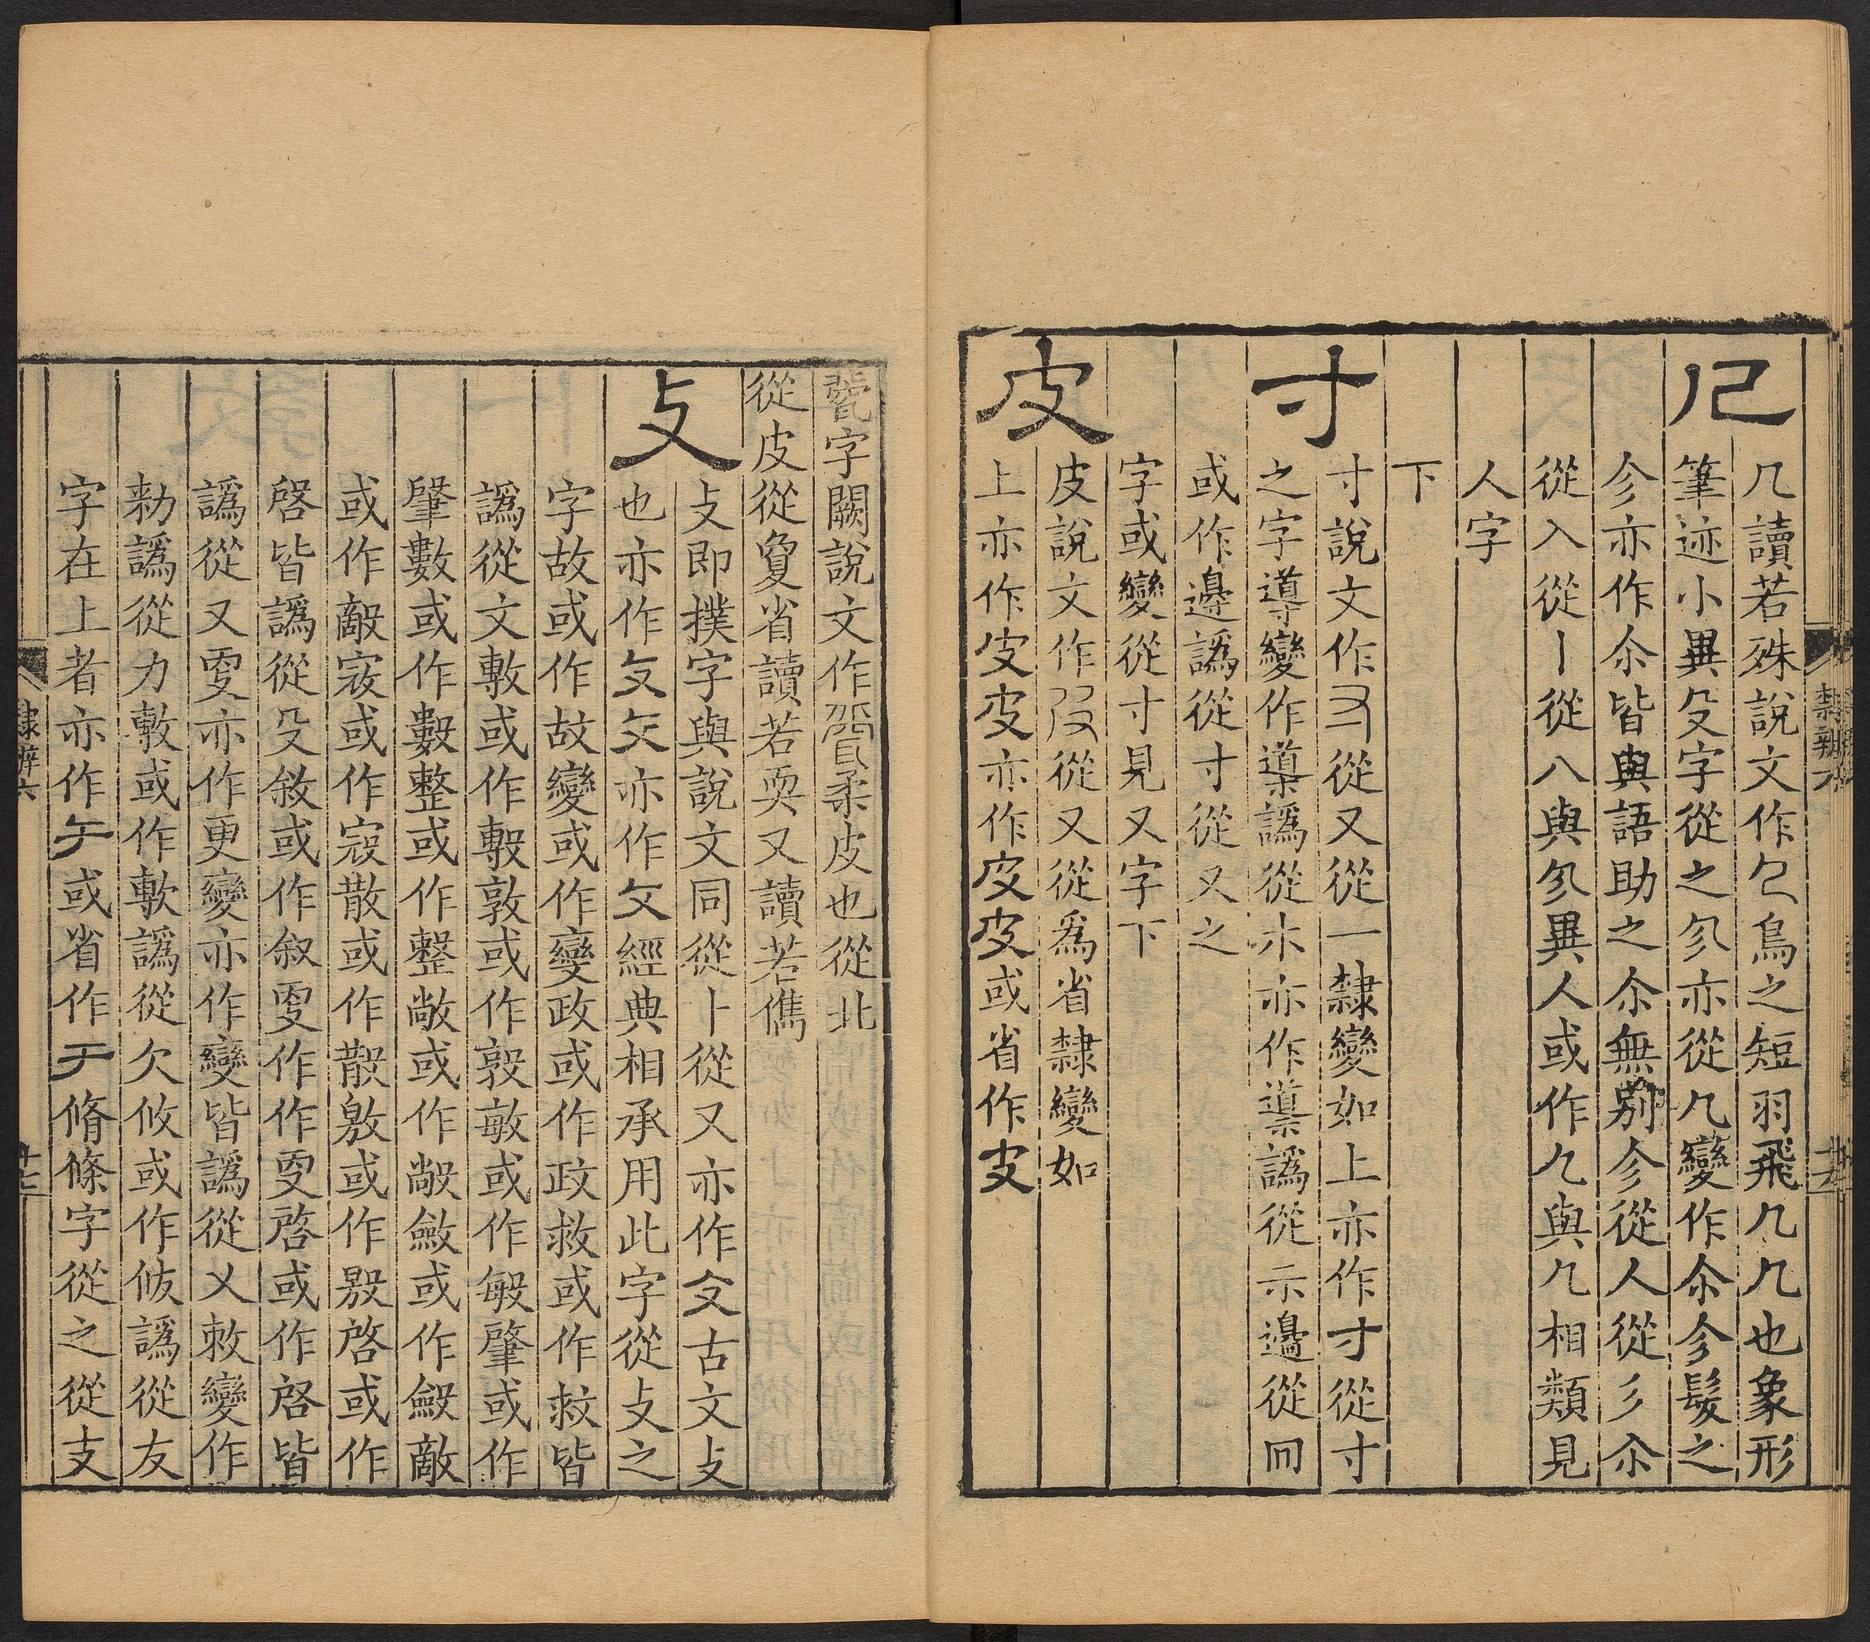 𠘧
𠘧讀若殊說文作𠘧鳥之短羽飛𠘧𠘧也象形
筆迹小異殳字從之㐱亦從𠘧變作尒㐱髮之
㐱亦作尒皆與語助之尒無別㐱從人從彡尒
從入從丨從八與㐱異人或作𠘧與𠘧相類見
人字
下
寸
寸說文作寸從又從一隸變如上亦作寸從寸
之字導變作導譌從木亦作導譌從示邊從冂
或作邊譌從寸從又之
字或變從寸見又字下
皮
皮說文作𤿌從又從爲省隸變如
上亦作皮皮亦作皮皮或省作皮
㼱字闕說文作㼱柔皮也從北
從皮從敻省讀若耎又讀若儁
攴
攴即撲字與說文同從卜從又亦作攵古文攴
也亦作攵攵亦作攵經典相承用此字從攴之
字故或作故變或作變政或作政救或作救皆
譌從文敷或作敷敦或作敦敏或作敏肇或作
肇數或作數整或作整敞或作敞斂或作斂敵
或作敵寇或作寇散或作散敫或作敫啓或作
啓皆譌從殳敘或作叙㪅作㪅啓或作啓皆
譌從又㪅亦作更變亦作變皆譌從乂敕變作
勑譌從力敷或作歟譌從欠攸或作攸譌從友
字在上者亦作𠂉或省作亠脩條字從之從支
隸辨六